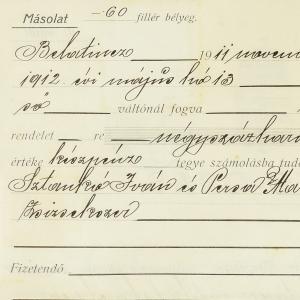 Másolat —60 fillér bélyeg.
Belatincz 1911 novem
1912. évi május hó 13
ső váltónál fogva
rendelet — re négyszázhar
értéke készpénz tegye számolásba tud
Sztankó Iván és Persa Ma
Zsizsekszer
Fizetendő